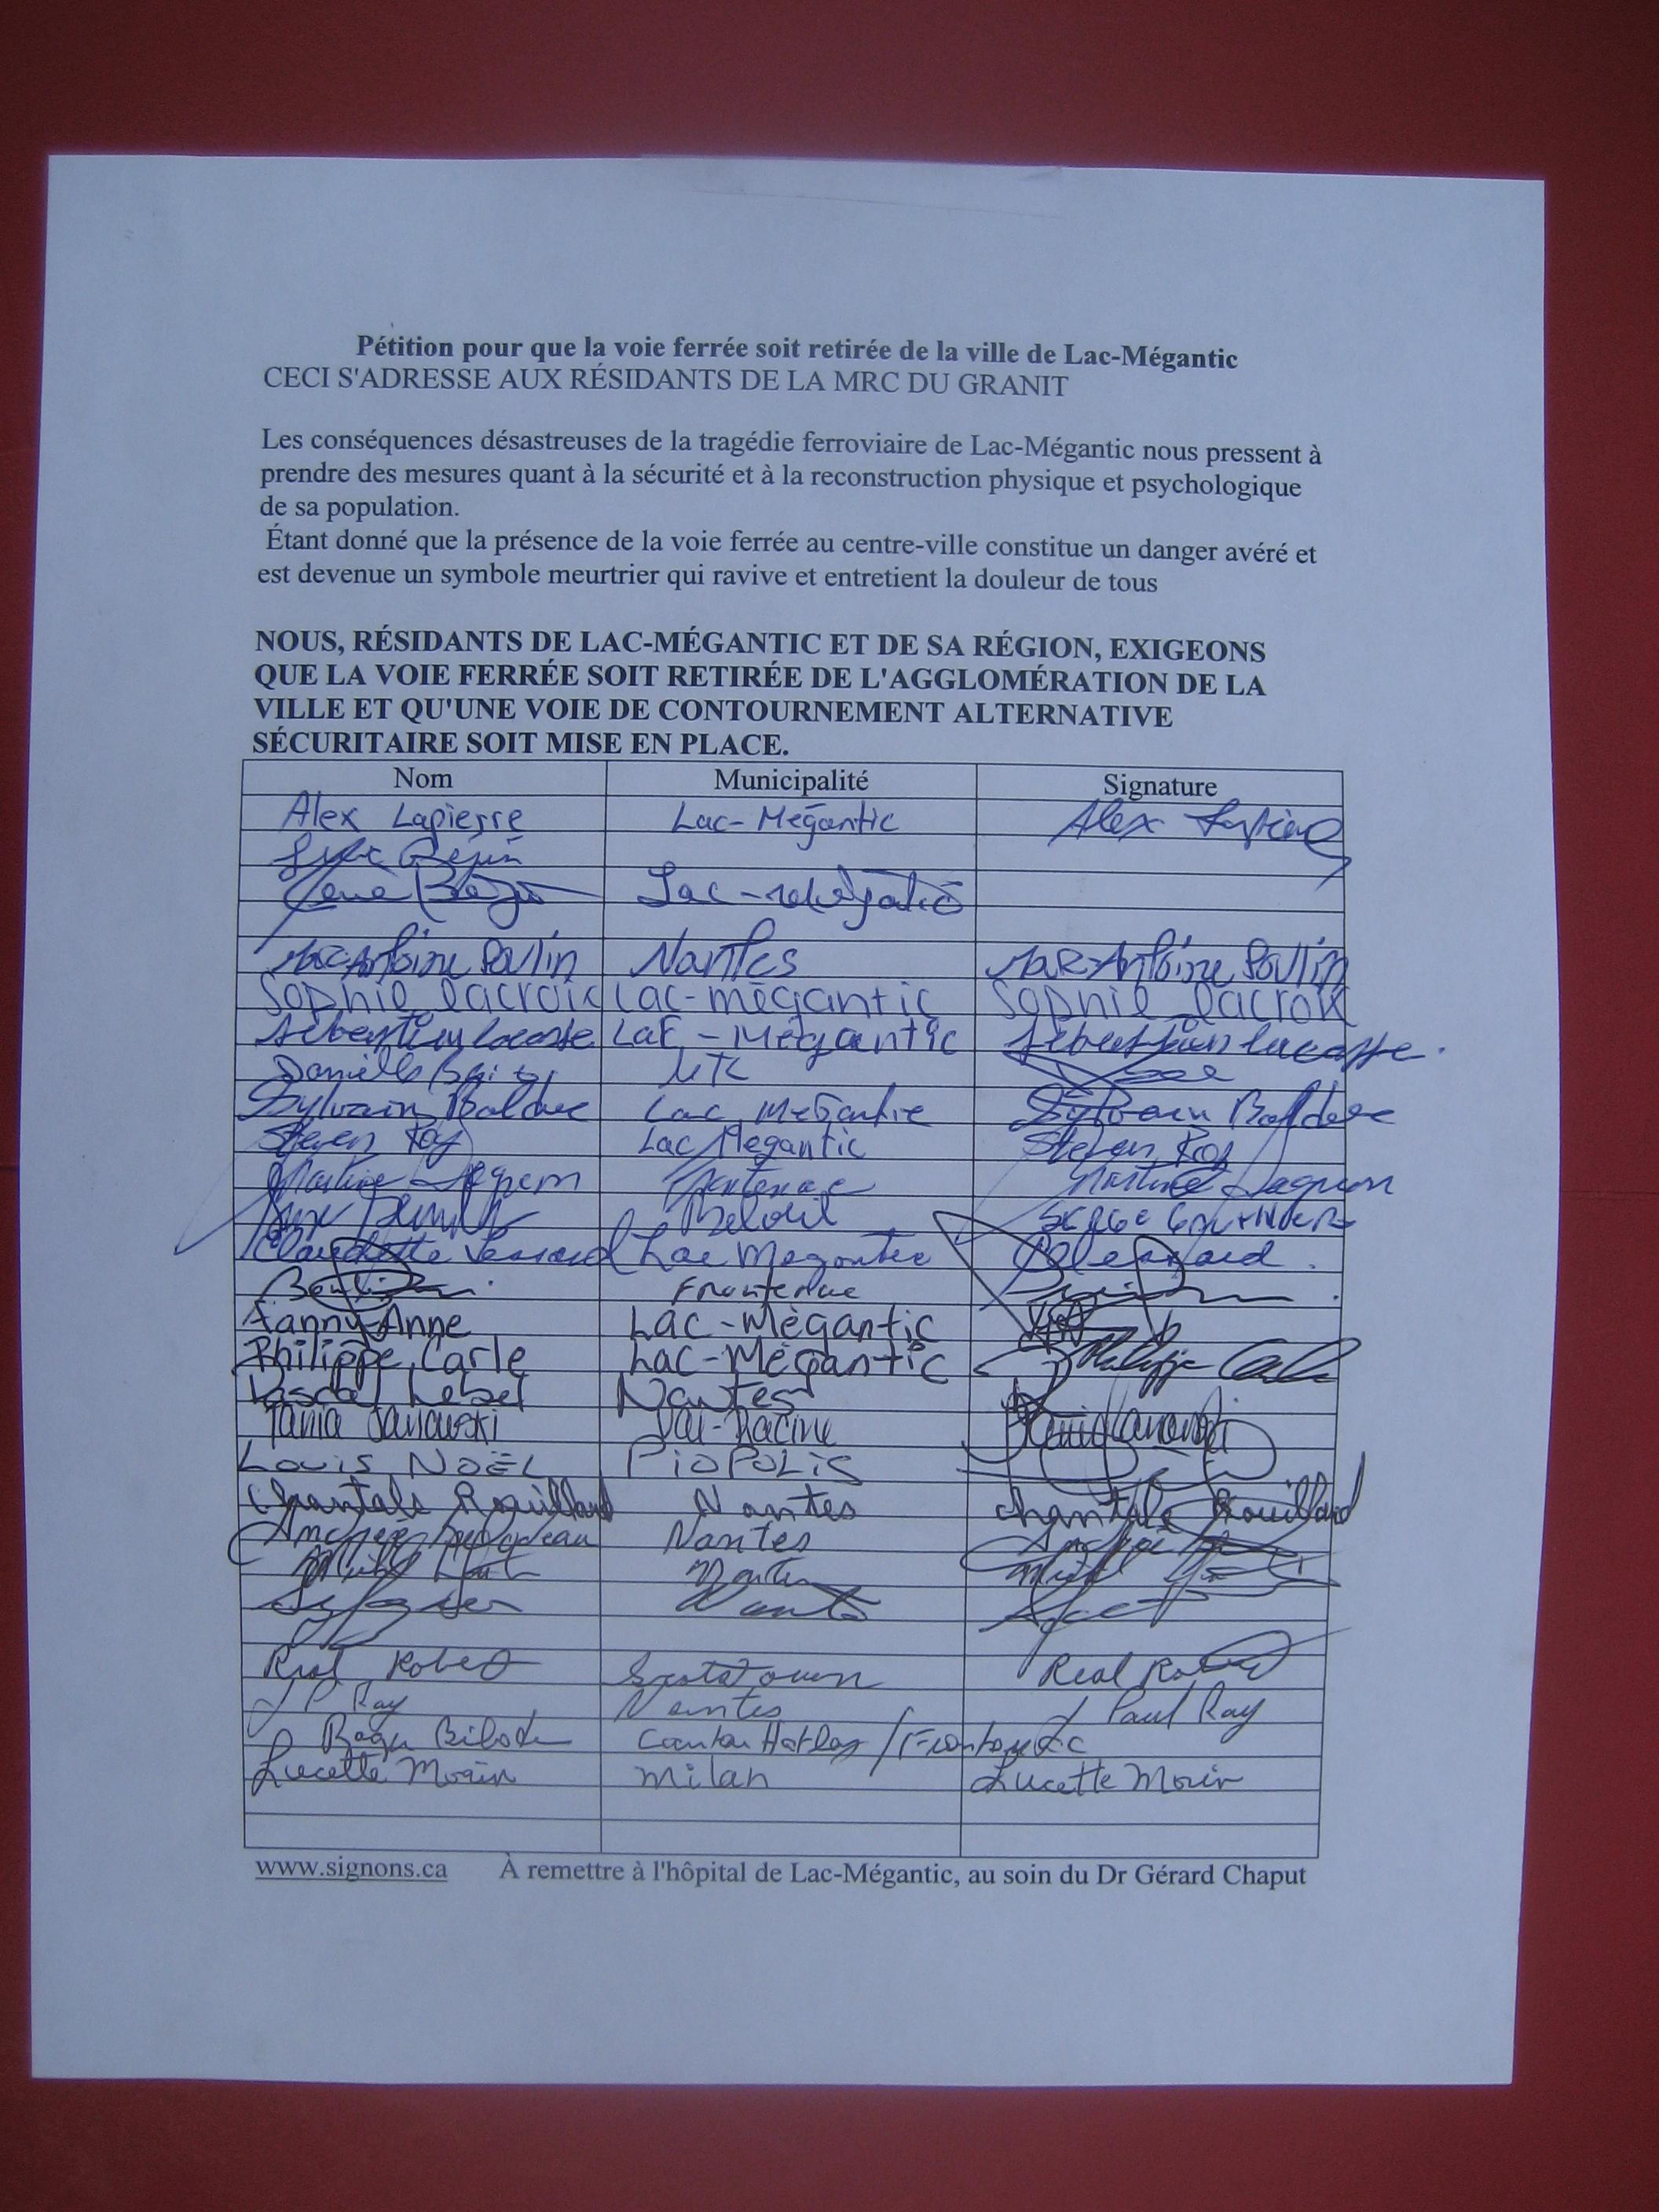 Pétition pour que la voie ferrée soit retirée de la ville de Lac-Mégantic
CECI S'ADRESSE AUX RÉSIDANTS DE LA MRC DU GRANIT
Les conséquences désastreuses de la tragédie ferroviaire de Lac-Mégantic nous pressent à
prendre des mesures quant à la sécurité et à la reconstruction physique et psychologique
de sa population.
Étant donné que la présence de la voie ferrée au centre-ville constitue un danger avéré et
est devenue un symbole meurtrier qui ravive et entretient la douleur de tous
NOUS, RÉSIDANTS DE LAC-MÉGANTIC ET DE SA RÉGION, EXIGEONS
QUE LA VOIE FERRÉE SOIT RETIRÉE DE L'AGGLOMÉRATION DE LA
VILLE ET QU'UNE VOIE DE CONTOURNEMENT ALTERNATIVE
SÉCURITAIRE SOIT MISE EN PLACE.
Nom Municipalité Signature
Alex Lapierre Lac-Mégantic Alex
Lac-
Marc-Antoine Poulin Nantes Marc-Antoine Poulin
Sophie Lacroix Lac-mégantic Sophie Lacroix
Sébastien Lacasse Lac-Mégantic Sébastien Lacasse
Sylvain Bolduc Lac Mégantic Sylvain Bolduc
Steven Roy Lac Mégantic Steven Roy
Martine Gagnon Frontenac Martine Gagnon
Beloeil
Claudette Lac Mégantic
Frontenac
Fanny-Anne Lac-Mégantic
Philippe Carle Lac-Mégantic Philippe Carle
Pascal Lebel Nantes
Tania Janowski Val-Racine
Louis NOËL PIOPOLIS
Chantale Rouillard Nantes Chantale Rouillard
Nantes
Nantes
Réal Robert Scotstown Réal Robert
J P Roy Nantes J Paul Roy
Lucette Morin Milan Lucette Morin
www.signons.ca À remettre à l'hôpital de Lac-Mégantic, au soin du Dr Gérard Chaput